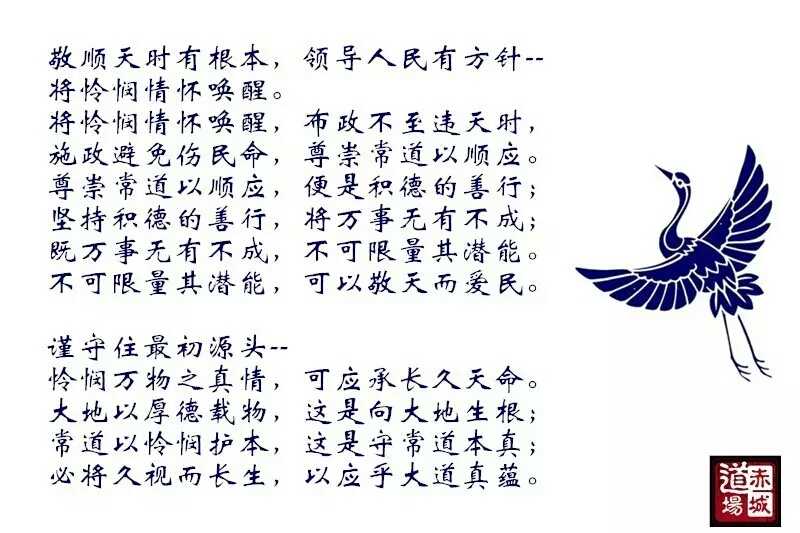 敬顺天时有根本，领导人民有方针--
将怜悯情怀唤醒。
将怜悯情怀唤醒，布政不至违天时，
施政避免伤民命，尊崇常道以顺应。
尊崇常道以顺应，便是积德的善行；
坚持积德的善行，将万事无有不成；
既万事无有不成，不可限量其潜能。
不可限量其潜能，可以敬天而爱民。
谨守住最初源头--
怜悯万物之真情，可应承长久天命。
大地以厚德载物，这是向大地生根；
常道以怜悯护本，这是守常道本真；
必将久视而长生，以应乎大道真蕴。
赤城
道場